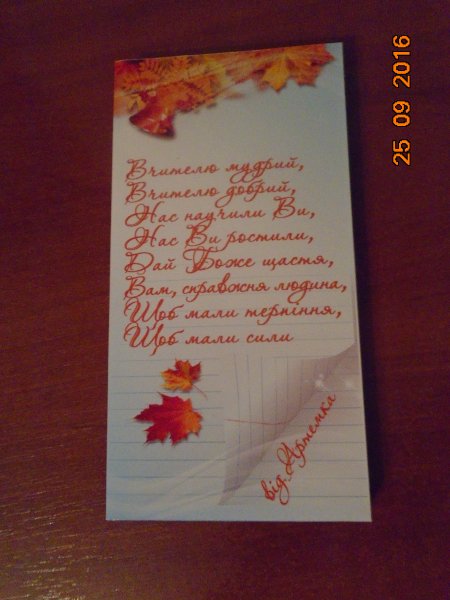 25 09 2016
Вчителю мудрий,
Вчителю добрий,
Нас научили Ви,
Нас Ви ростили,
Дай Боже щастя,
Вам, справжня людина,
Щоб мали терпіння,
Щоб мали сили
від Артемка